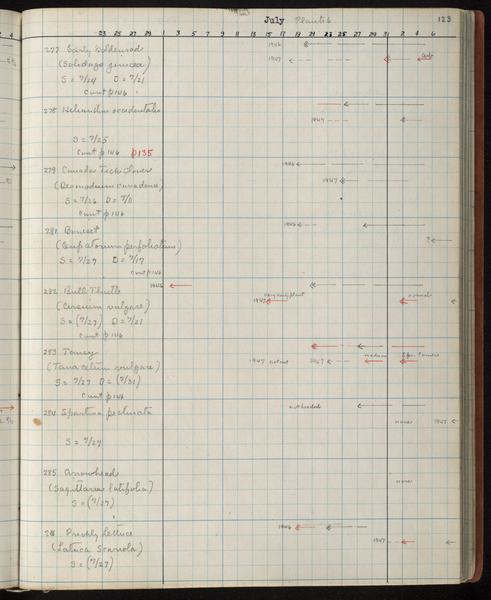 July Plants 6 123
23 25 27 29 1 3 5 7 9 11 13 15 17 19 21 23 25 27 29 31 2 4 6
277 Early Goldenrod 1946
(Solidago juncea) 1947
S = 7/24 D = 7/21
Cont p 146
278 Helianthus occidentalis
1947
S = 7/25
Cont p 146 p135
279 Canada Tick Clover 1946
(Desmodium canadense) 1947
S = 7/26 D = 7/11
Cont p 146
281 Boneset 1946
(Eupatorium perfoliatum) ?
S = 7/27 D = 7/17
Cont p 146
282 Bull Thistle 1946
very early plant
(Cirsium vulgare) 1947
S = (7/27) D = 7/21
Cont p 146
283 Tansy
(Tanacetum vulgare) 1947 not out
S = 7/27 D = (7/31)
Cont p 146
284 Spartina pectinata not headed
none 1947
S = 7/27
285 Arrowhead
(Sagittaria latifolia) none
S = (7/27)
286 Prickly Lettuce 1946
(Latuca Scariola) 1947
S = (7/27)